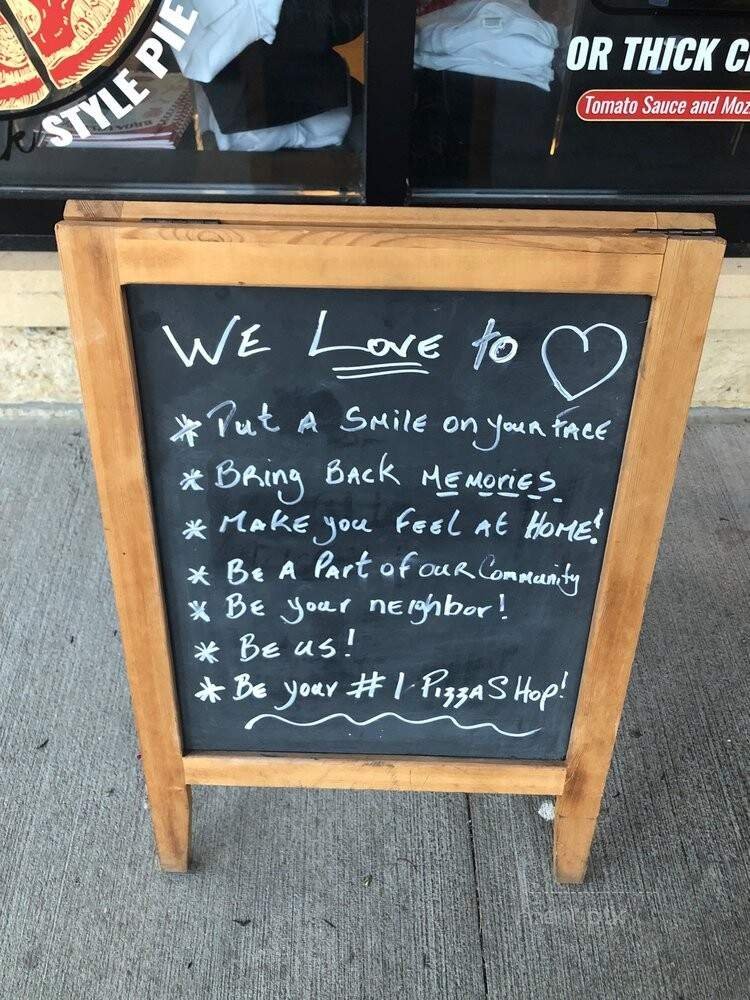 STYLE PIE
OR THICK C
Tomato Sauce and Moz
WE LOVE to
* Put A SMILE on your FACE
* BRing BACK MEMORIES
* MAKE you FEEL At HOME!
* BE A PArt of ouR Community
* BE your neighbor!
* BE us!
* BE your #1 PizzA SHop!